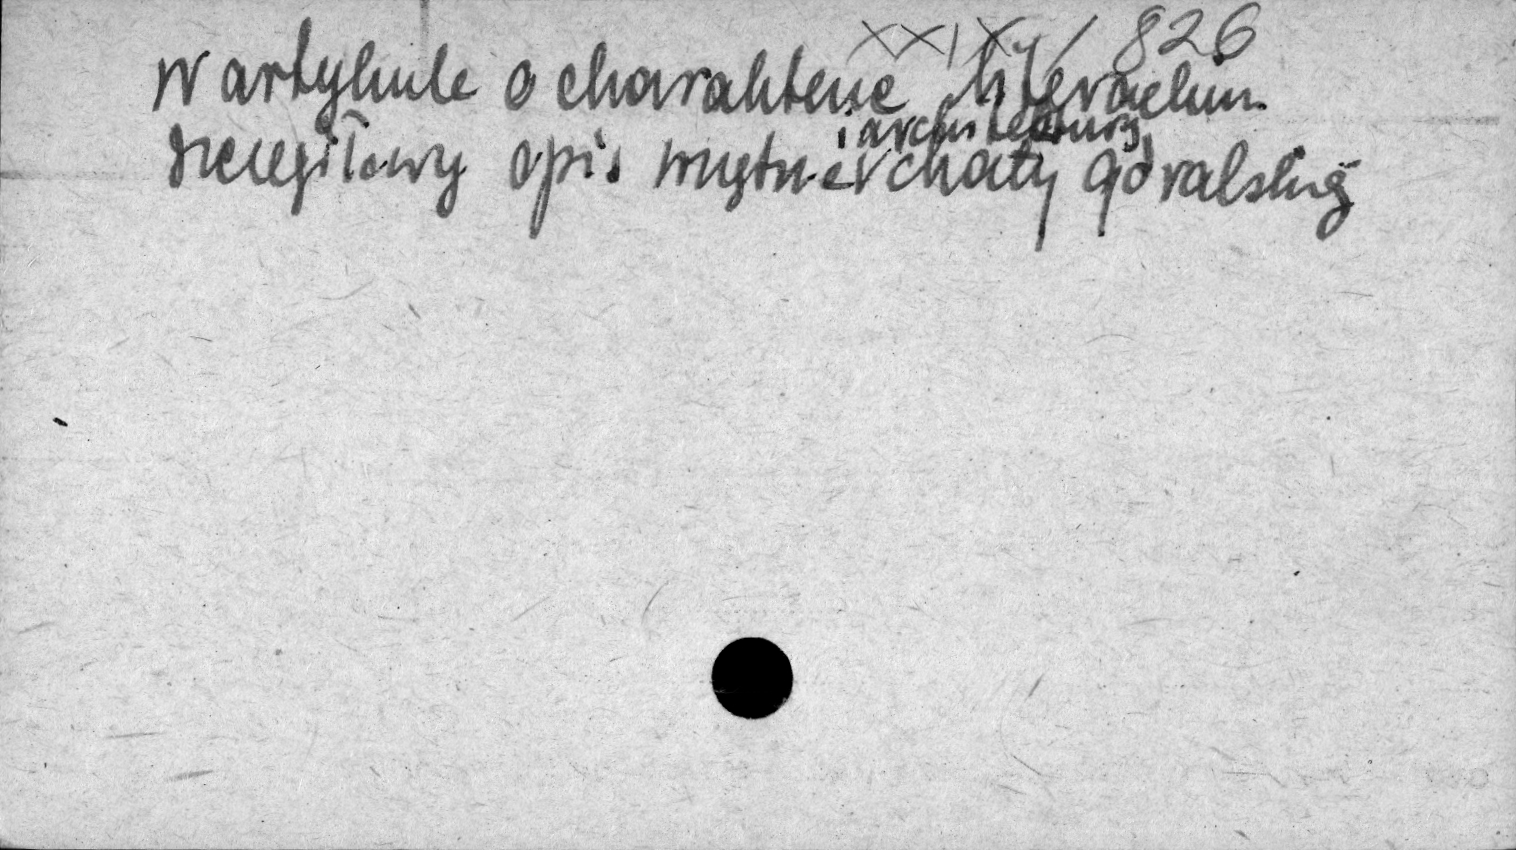 XXIX/826
W artykule o charakterze literackim
szczegółowy opis wnętrza i architektury chaty góralskiej